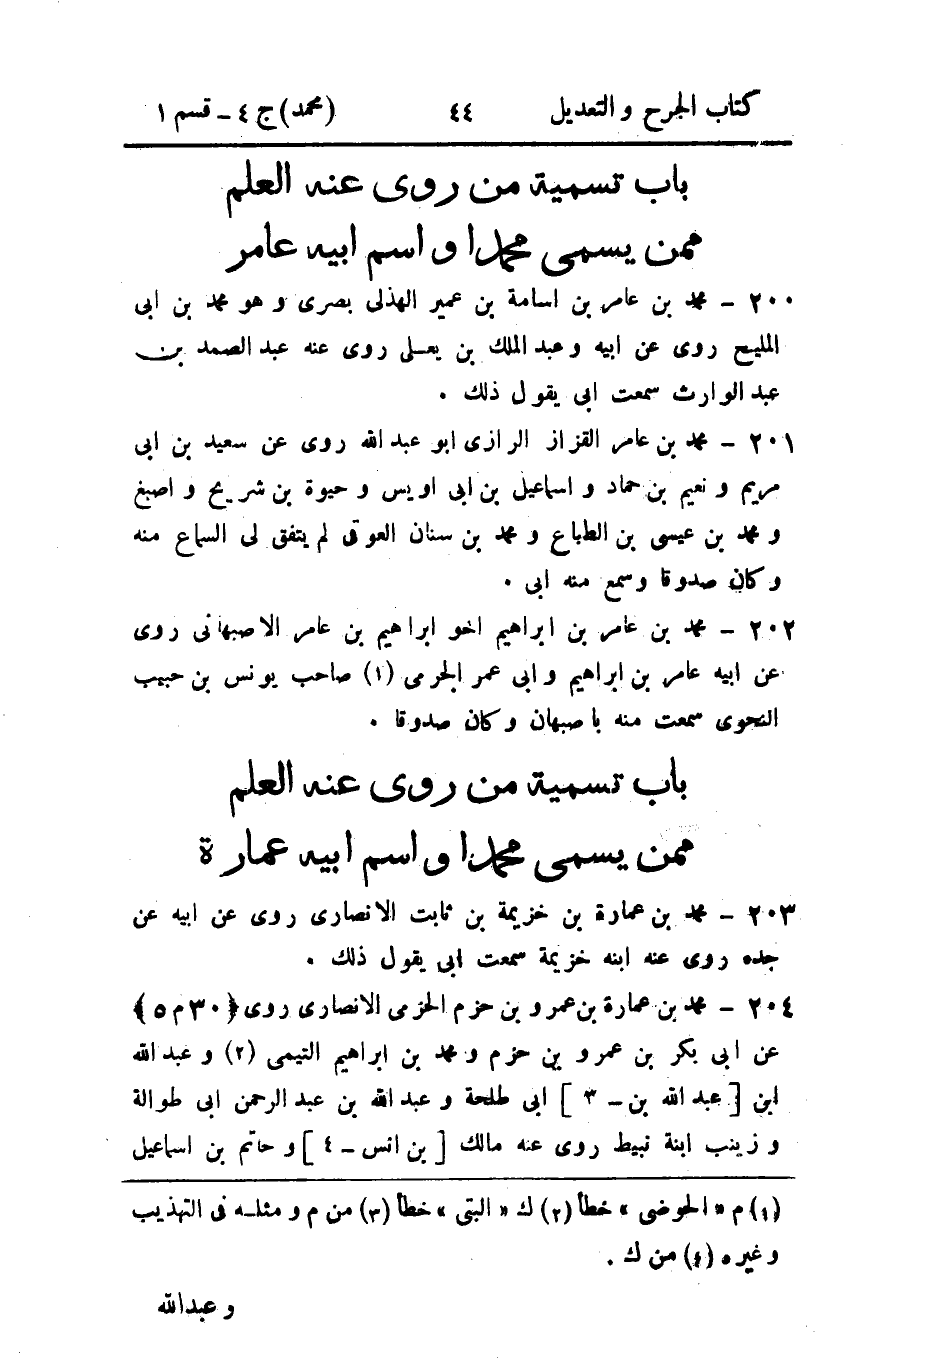 كتاب الجرح والتعديل ٤٤ (محمد) ج ٤ - قسم ١
باب تسمية من روى عنه العلم
ممن يسمى محمدا واسم ابيه عامر
٢٠٠ - محمد بن عامر بن اسامة بن عمير الهذلى بصرى و هو محمد بن ابى
المليح روى عن ابيه وعبد الملك بن يعلى روى عنه عبد الصمد بن
عبد الوارث سمعت ابى يقول ذلك .
٢٠١ - محمد بن عامر القزاز الرازى ابو عبد الله روى عن سعيد بن ابى
مريم و نعيم بن حماد و اسماعيل بن ابى اويس و حيوة بن شريح و اصبغ
و محمد بن عيسى بن الطباع و محمد بن سنان العوقى لم يتفق لى السماع منه
وكان صدوقا وسمع منه ابى .
٢٠٢ - محمد بن عامر بن ابراهيم اخو ابراهيم بن عامر الاصبهانى روى
عن ابيه عامر بن ابراهيم وابى عمر الجرمى (١) صاحب يونس بن حبيب
النحوى سمعت منه باصبهان وكان صدوقا .
باب تسمية من روى عنه العلم
ممن يسمى محمدا واسم ابيه عمارة
٢٠٣ - محمد بن عمارة بن خزيمة بن ثابت الانصارى روى عن ابيه عن
جده روى عنه ابنه خزيمة سمعت ابى يقول ذلك .
٢٠٤ - محمد بن عمارة بن عمرو بن حزم الحزمى الانصارى روى ﴿٣٠م٥﴾
عن ابى بكر بن عمرو بن حزم ومحمد بن ابراهيم التيمى (٢) و عبد الله
ابن [عبد الله بن - ٣] ابى طلحة و عبد الله بن عبد الرحمن ابى طوالة
و زينب ابنة نبيط روى عنه مالك [بن انس - ٤] و حاتم بن اسماعيل
(١) م «الحوضى» خطأ (٢) ك «البتى» خطأ (٣) من م و مثله فى التهذيب
وغيره (٤) من ك .
و عبدالله